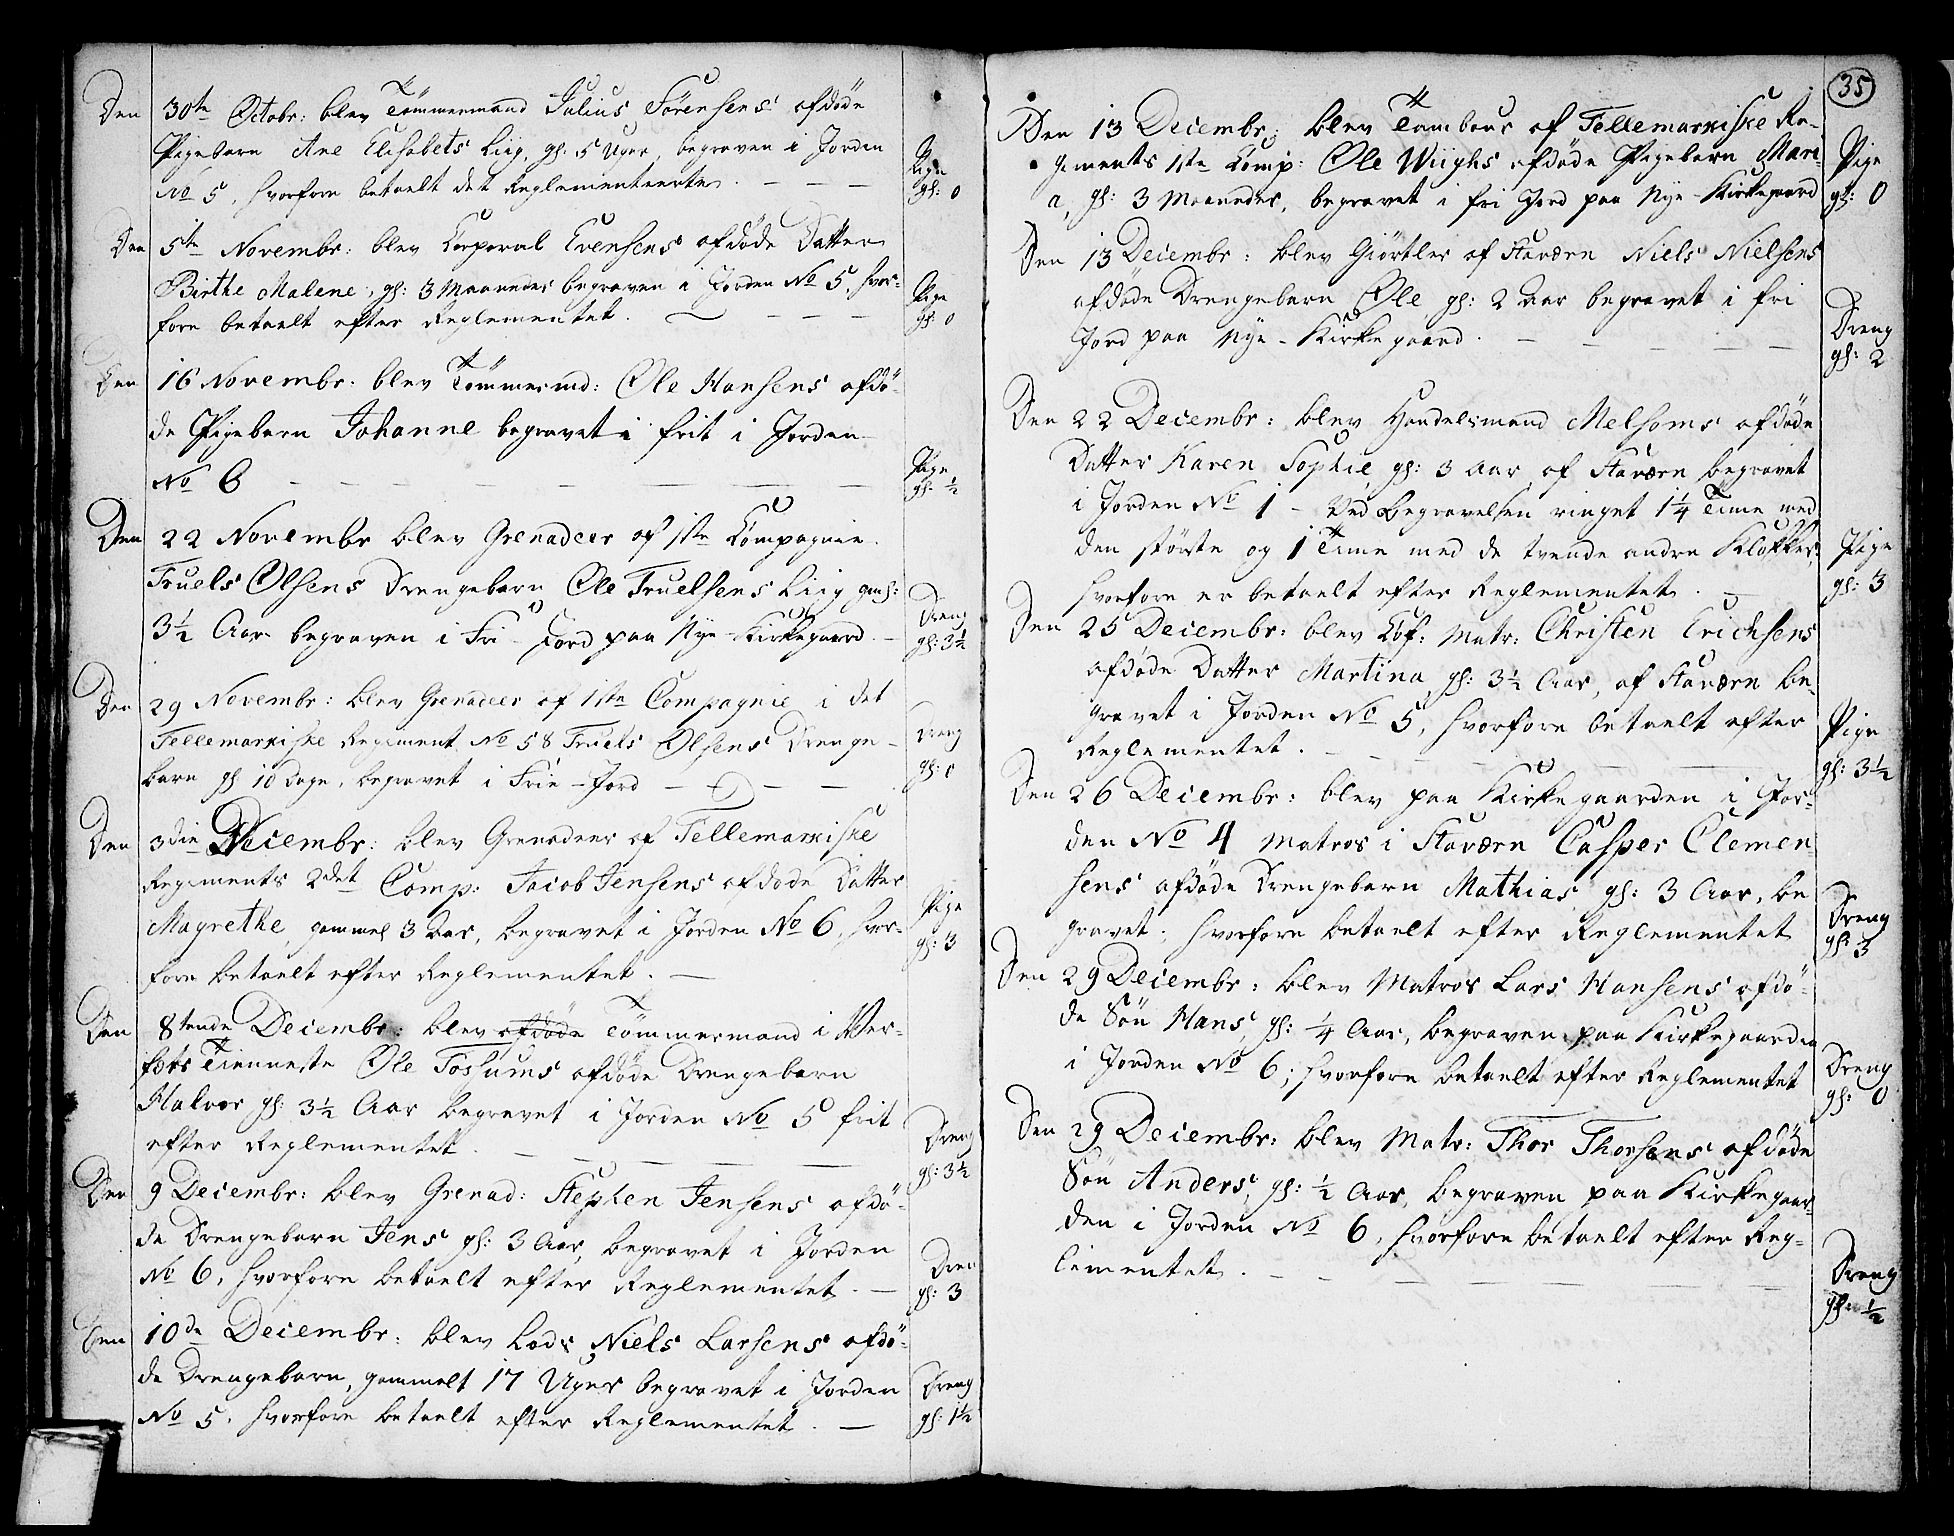 Den 30te Octobr: blev Tömmermand Julius Sörensens afdöde
Pigebarn Ane Elisabets Liig, gl: 5 Uger, begraven i Jorden
No 5, hvorfore betaelt det Reglementeerte. — — —
Pige
gl: 0
Den 5te Novembr: blev Corporal Evensens afdöde Datter
Birthe Malene, gl: 3 Maaneder begraven i Jorden No 5, hvor-
fore betaelt efter Reglementet. — — — —
Pige
gl: 0
Den 16 Novembr: blev Tömmermd: Ole Hansens afdö-
de Pigebarn Johanne begravet i frit i Jorden
No 6 — — — — — —
Pige
gl: ½
Den 22 Novembr blev Grenadeer af 1ste Compagnie
Truels Olsens Drengebarn Ole Truelsens Liig gml:
3½ Aar begraven i Fri-Jord paa Nye Kirkegaard. —
Dreng
gl: 3½
Den 29 Novembr: blev Grenadeer af 1ste Compagnie i det
Tellemarkiske Regiment No 58 Truels Olsens Drenge-
barn gl 10 Dage, begravet i Frie-Jord — — —
Dreng
gl: 0
Den 3die Decembr: blev Grenadeer af Tellemarkiske
Regiments 2det Comp: Jacob Jensens afdöde Datter
Magrethe, gammel 3 Aar, begravet i Jorden No 6, hvor-
fore betaelt efter Reglementet. —
Pige
gl: 3
Den 8tende Decembr: blev afdöde Tömmermand i Ver-
fets Tienneste Ole Fossums afdöde Drengebarn
Halvor gl: 3½ Aar begravet i Jorden No 5 frit
efter Reglementet. — — — — —
Dreng
gl: 3½
Den 9 Decembr: blev Grenad: Stephen Jensens afdö-
de Drengebarn Jens gl: 3 Aar, begravet i Jorden
No 6, hvorfore betaelt efter Reglementet. —
Dren
gl: 3
Den 10de Decembr: blev Lods Niels Larsens afdö-
de Drengebarn, gammelt 17 Uger begravet i Jorden
No 5, hvorfore betaelt efter Reglementet. —
Dreng
gl: 1½
35
Den 13 Decembr: blev Tambour af Tellemarkiske Re-
giments 1ste Comp: Ole Wiighs afdöde Pigebarn Mari-
a, gl: 3 Maaneder, begravet i fri Jord paa Nye-Kirkegaard
Pige
gl: 0
Den 13 Decembr: blev Giörtler af Staværn Niels Nielsens
afdöde Drengebarn Ole, gl: 2 Aar begravet i fri
Jord paa Nye-Kirkegaard. — — — — —
Dreng
gl: 2
Den 22 Decembr: blev Handelsmand Melsoms afdöde
Datter Karen Sophie, gl: 3 Aar, af Staværn begravet
i Jorden No 1 — Ved Begravelsen ringet 1¼ Time med
den störste og 1 Time med de tvende andre Klokker,
hvorfore er betaelt efter Reglementet. —
Pige
gl: 3
Den 25 Decembr: blev Cof: Matr: Christen Erichsens
afdöde Datter Martina, gl: 3½ Aar, af Staværn be-
gravet i Jorden No 5, hvorfore betaelt efter
Reglementet. — — — — — —
Pige
gl: 3½
Den 26 Decembr: blev paa Kirkegaarden i Jor-
den No 4 Matros i Staværn Casper Clemen-
sens afdöde Drengebarn Mathias, gl: 3 Aar, be
gravet; hvorfore betaelt efter Reglementet
Dreng
gl: 3
Den 29 Decembr: blev Matros Lars Hansens afdö-
de Sön Hans, gl: ¼ Aar, begraven paa Kirkegaarden
i Jorden No 6; hvorfore betaelt efter Reglementet
Dreng
gl: 0
Den 29 Decembr: blev Matr: Thor Thorsens afdöde
Sön Anders, gl: ½ Aar, begraven paa Kirkegaar-
den i Jorden No 6, hvorfore betaelt efter Reg-
lementet. — — — — — — —
Dreng
gl: ½